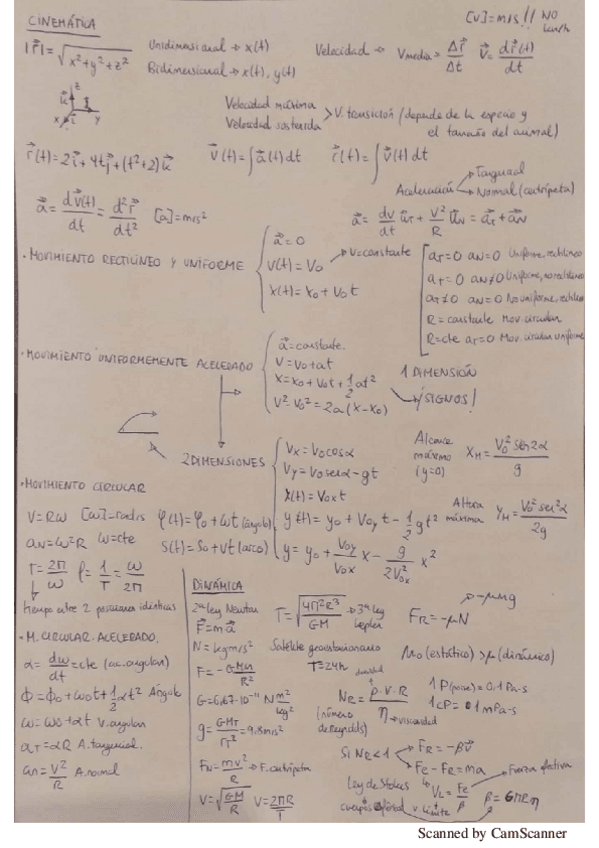 CINEMÁTICA
[v]=m/s!! NO km/h
|r⃗|=√(x²+y²+z²)
Unidimensional → x(t)
Bidimensional → x(t), y(t)
Velocidad → Vmedia = Δr⃗/Δt v⃗ = dr⃗(t)/dt
z k j y x i
Velocidad máxima
Velocidad sostenida > V. transición (depende de la especie y
el tamaño del animal)
r⃗(t)=2i⃗+4tj⃗+(t²+2)k⃗ v⃗(t)=∫a⃗(t)dt r⃗(t)=∫v⃗(t)dt
Aceleración → Tangencial
→ Normal (centrípeta)
a⃗ = dv⃗(t)/dt = d²r⃗/dt² [a]=m/s²
a⃗ = dv/dt u⃗T + v²/R u⃗N = a⃗T + a⃗N
· MOVIMIENTO RECTILÍNEO Y UNIFORME
a⃗=0
v(t)=v₀ → v=constante
x(t)=x₀+v₀t
aT=0 aN=0 Uniforme, rectilíneo
aT=0 aN≠0 Uniforme, no rectilíneo
aT≠0 aN=0 No uniforme, rectilíneo
R=constante Mov. circular
R=cte aT=0 Mov. circular uniforme
· MOVIMIENTO UNIFORMEMENTE ACELERADO
a⃗=constante.
v=v₀+at
x=x₀+v₀t+½at²
v²-v₀²=2a(x-x₀)
1 DIMENSIÓN
¡SIGNOS!
2 DIMENSIONES
Vx=V₀cosα
Vy=V₀senα-gt
x(t)=V₀xt
y(t)=y₀+V₀yt-½gt²
y=y₀+(V₀y/V₀x)x-(g/2V₀x²)x²
Alcance máximo (y=0) XM=V₀²sen2α/g
Altura máxima YM=V₀²sen²α/2g
· MOVIMIENTO CIRCULAR
V=Rω [ω]=rad/s φ(t)=φ₀+ωt (ángulo)
aN=ω²R ω=cte s(t)=s₀+vt (arco)
T=2π/ω f=1/T=ω/2π
tiempo entre 2 posiciones idénticas
· M. CIRCULAR ACELERADO,
α=dω/dt=cte (ac. angular)
Φ=Φ₀+ω₀t+½αt² Ángulo
ω=ω₀+αt V. angular
aT=αR A. tangencial.
aN=v²/R A. normal
DINÁMICA
2ª ley Newton
F⃗=ma⃗
N=kg m/s²
F=-GMm/R²
G=6,67·10⁻¹¹ N m²/kg²
g=GMT/rT²=9,8m/s²
FN=mv²/R → F. centrípeta
V=√(GM/R) V=2πR/T
T=√(4π²R³/GM) → 3ª ley Kepler
Satélite geoestacionario
T=24h
FR=-μN → -μmg
μ₀ (estático) > μ (dinámico)
NR=ρ·v·R/η
densidad
viscosidad
(número de Reynolds)
1P (poise)=0,1Pa·s
1cP=1mPa·s
Si NR<1 → FR=-βv⃗
→ Fe-FR=ma
Ley de Stokes
VL=Fe/β → Fuerza efectiva
v. límite β=6πRη